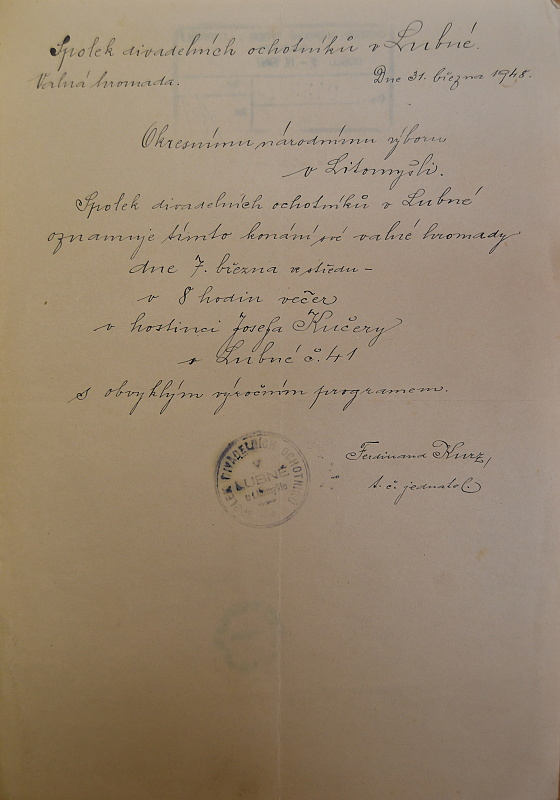 Spolek divadelních ochotníků v Lubné.
Valná hromada.
Dne 31. března 1948.
Okresnímu národnímu výboru
v Litomyšli.
Spolek divadelních ochotníků v Lubné
oznamuje tímto konání své valné hromady
dne 7. března ve středu –
v 8 hodin večer
v hostinci Josefa Kučery
v Lubné č. 41
s obvyklým výročním programem.
Ferdinand Kurz,
t. č. jednatel.
SPOLEK DIVADELNÍCH OCHOTNÍKŮ
V
LUBNÉ
u Litomyšle